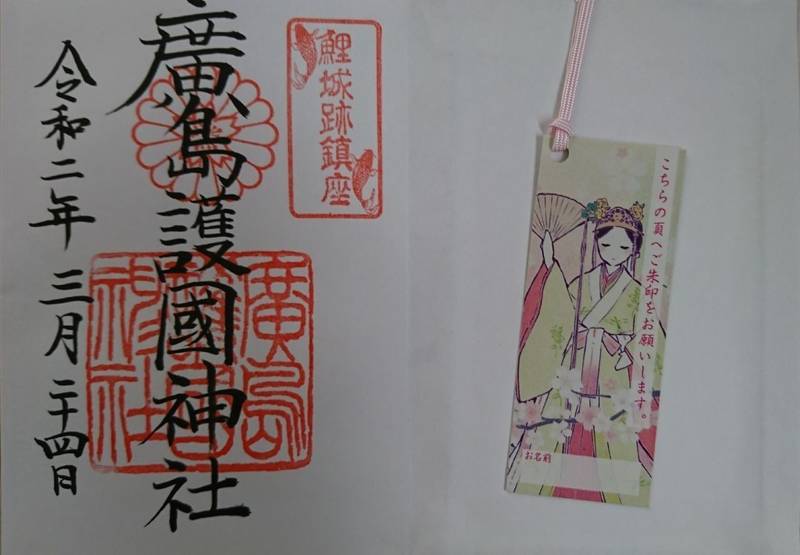 鯉城跡鎮座
廣島護國神社
令和二年三月二十四日
廣島
神社
こちらの頁へご朱印をお願いします。
お名前